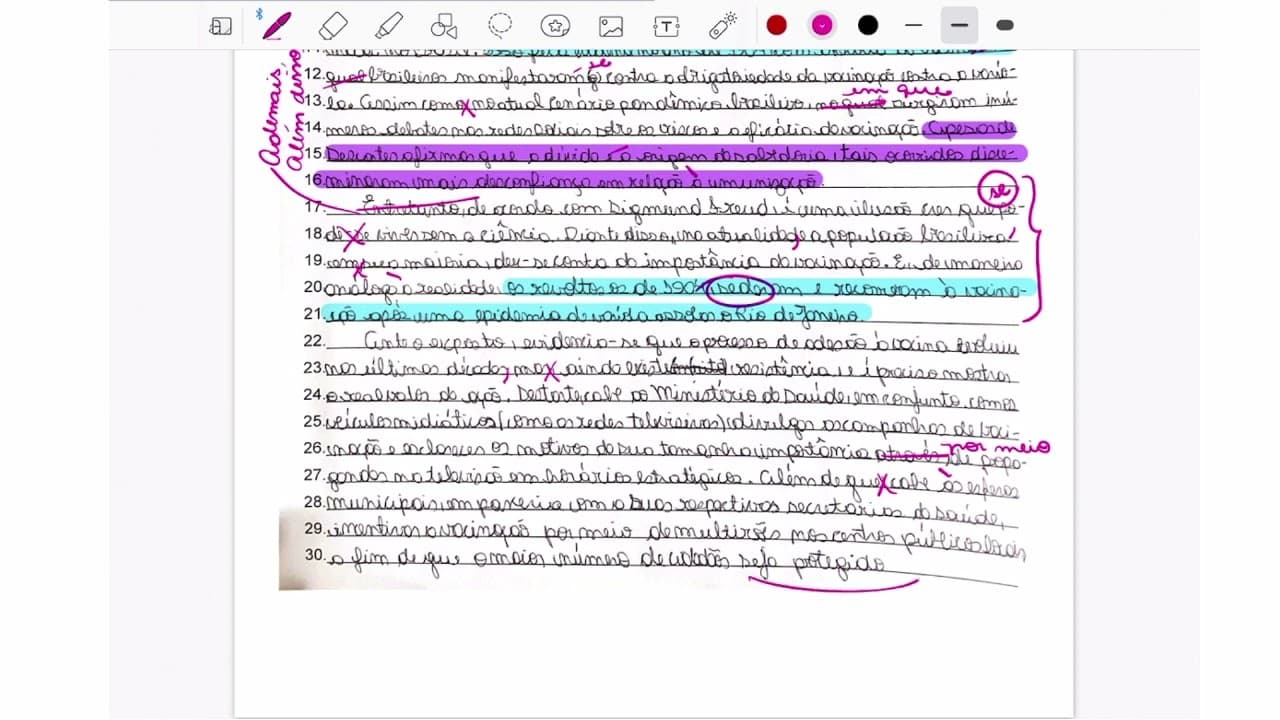 Ademais,
Além disso
-se
12. brasileiros manifestaram contra a obrigatoriedade da vacinação contra a varío-
em que
13. la. Assim como, no atual cenário pandêmico brasileiro, no qual surgiram inú-
14. meros debates nas redes sociais sobre os riscos e a eficácia da vacinação. Apesar de
15. Descartes afirmar que a dúvida é a origem da sabedoria, tais ocorridos disse-
16. minaram mais desconfiança em relação à imunização.
se
17. Entretanto, de acordo com Sigmund Freud é uma ilusão crer que po-
18. de-se viver sem a ciência. Diante disso, na atualidade, a população brasileira,
19. em sua maioria, deu-se conta da importância da vacinação. E, de maneira
20. análoga a realidade, os revoltosos de 1904, sederam e recorreram à vacina-
21. ção após uma epidemia de varíola assolar o Rio de Janeiro.
22. Ante o exposto, evidencia-se que o processo de adesão à vacina evoluiu
23. nas últimas décadas, mas, ainda existe resistência, e é preciso mostrar
24. o real valor da ação. Destarte, cabe ao Ministério da Saúde, em conjunto com os
25. veículos midiáticos (como as redes televisivas) divulgar as campanhas de vaci-
por meio
26. nação e esclarecer os motivos de sua tamanha importância através de propa-
27. gandas na televisão em horários estratégicos. Além de que, cabe às esferas
28. municipais, em parceria com a suas respectivas secretarias da saúde,
29. incentivar a vacinação por meio de multirões nos centros públicos locais,
30. a fim de que o maior número de cidadãos seja protegido